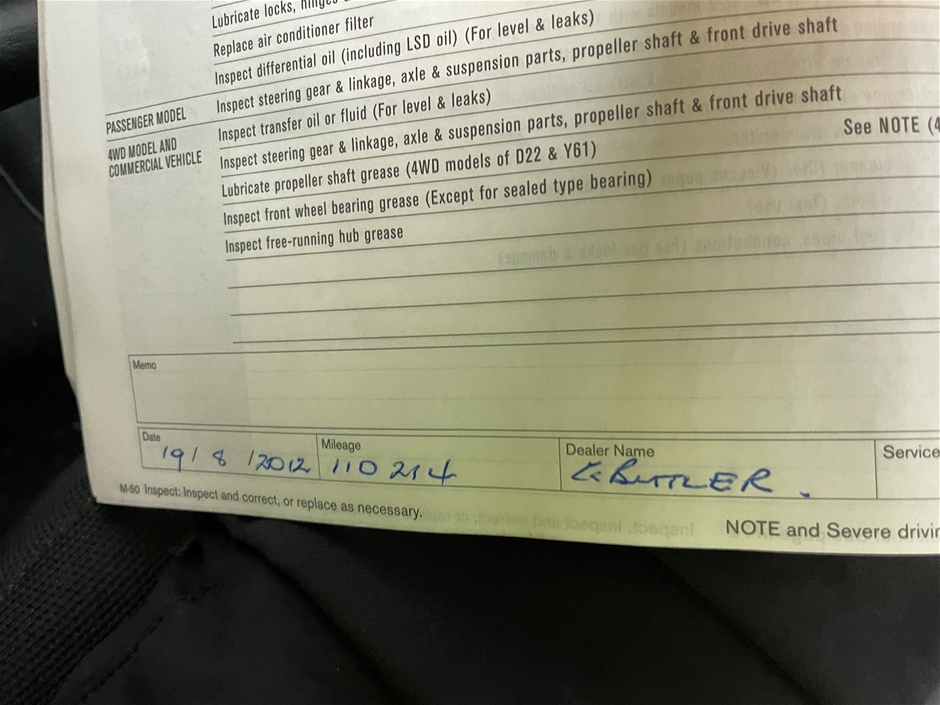 Lubricate locks, hinges &
Replace air conditioner filter
Inspect differential oil (including LSD oil) (For level & leaks)
Inspect steering gear & linkage, axle & suspension parts, propeller shaft & front drive shaft
PASSENGER MODEL
Inspect transfer oil or fluid (For level & leaks)
4WD MODEL AND
COMMERCIAL VEHICLE
Inspect steering gear & linkage, axle & suspension parts, propeller shaft & front drive shaft
Lubricate propeller shaft grease (4WD models of D22 & Y61) See NOTE (4
Inspect front wheel bearing grease (Except for sealed type bearing)
Inspect free-running hub grease
Memo
Date Mileage Dealer Name Service
19/8/2012 110214 BUTTLER.
M-50 Inspect: Inspect and correct, or replace as necessary.
NOTE and Severe drivin